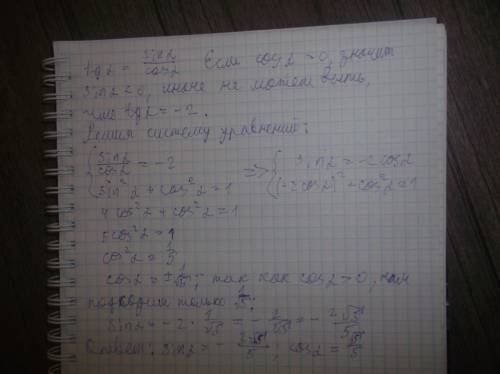 tg α = sin α / cos α Если cos α > 0, значит
sin α < 0, иначе не может быть,
что tg α = -2.
Решим систему уравнений:
{ sin α / cos α = -2 => { sin α = -2 cos α
{ sin² α + cos² α = 1 { (-2 cos α)² + cos² α = 1
4 cos² α + cos² α = 1
5 cos² α = 1
cos² α = 1/5
cos α = ± 1/√5; так как cos α > 0, нам
подходит только 1/√5.
sin α = -2 · 1/√5 = - 2/√5 = - 2√5/5
Ответ: sin α = - 2√5/5; cos α = √5/5